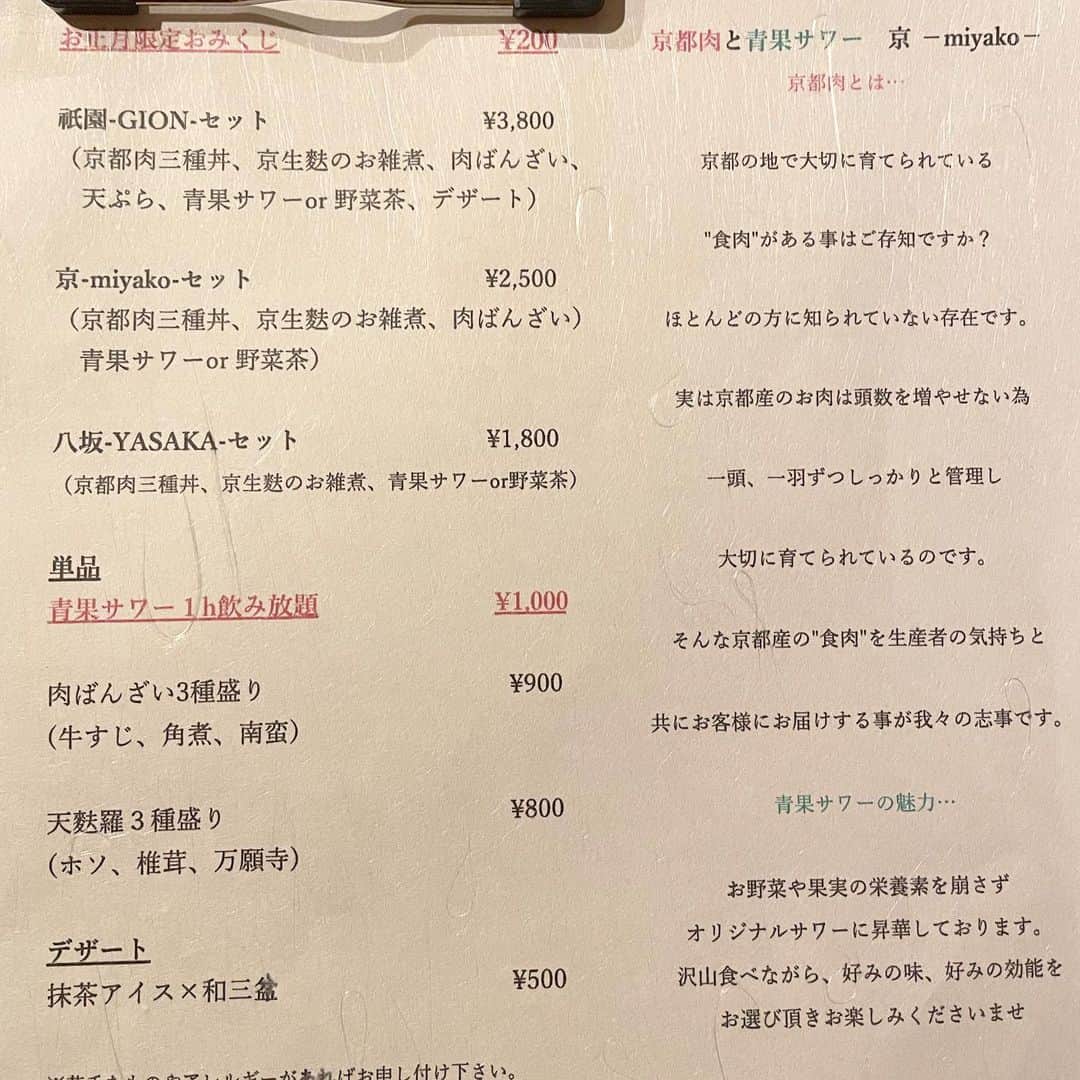 お正月限定おみくじ ¥200
祇園-GION-セット ¥3,800
（京都肉三種丼、京生麩のお雑煮、肉ばんざい、
天ぷら、青果サワーor 野菜茶、デザート）
京-miyako-セット ¥2,500
（京都肉三種丼、京生麩のお雑煮、肉ばんざい）
青果サワーor 野菜茶）
八坂-YASAKA-セット ¥1,800
（京都肉三種丼、京生麩のお雑煮、青果サワーor野菜茶）
単品
青果サワー１h飲み放題 ¥1,000
肉ばんざい3種盛り ¥900
(牛すじ、角煮、南蛮)
天麩羅３種盛り ¥800
(ホソ、椎茸、万願寺)
デザート
抹茶アイス×和三盆 ¥500
アレルギーがあればお申し付け下さい。
京都肉と青果サワー 京 －miyako－
京都肉とは…
京都の地で大切に育てられている
"食肉"がある事はご存知ですか？
ほとんどの方に知られていない存在です。
実は京都産のお肉は頭数を増やせない為
一頭、一羽ずつしっかりと管理し
大切に育てられているのです。
そんな京都産の"食肉"を生産者の気持ちと
共にお客様にお届けする事が我々の志事です。
青果サワーの魅力…
お野菜や果実の栄養素を崩さず
オリジナルサワーに昇華しております。
沢山食べながら、好みの味、好みの効能を
お選び頂きお楽しみくださいませ